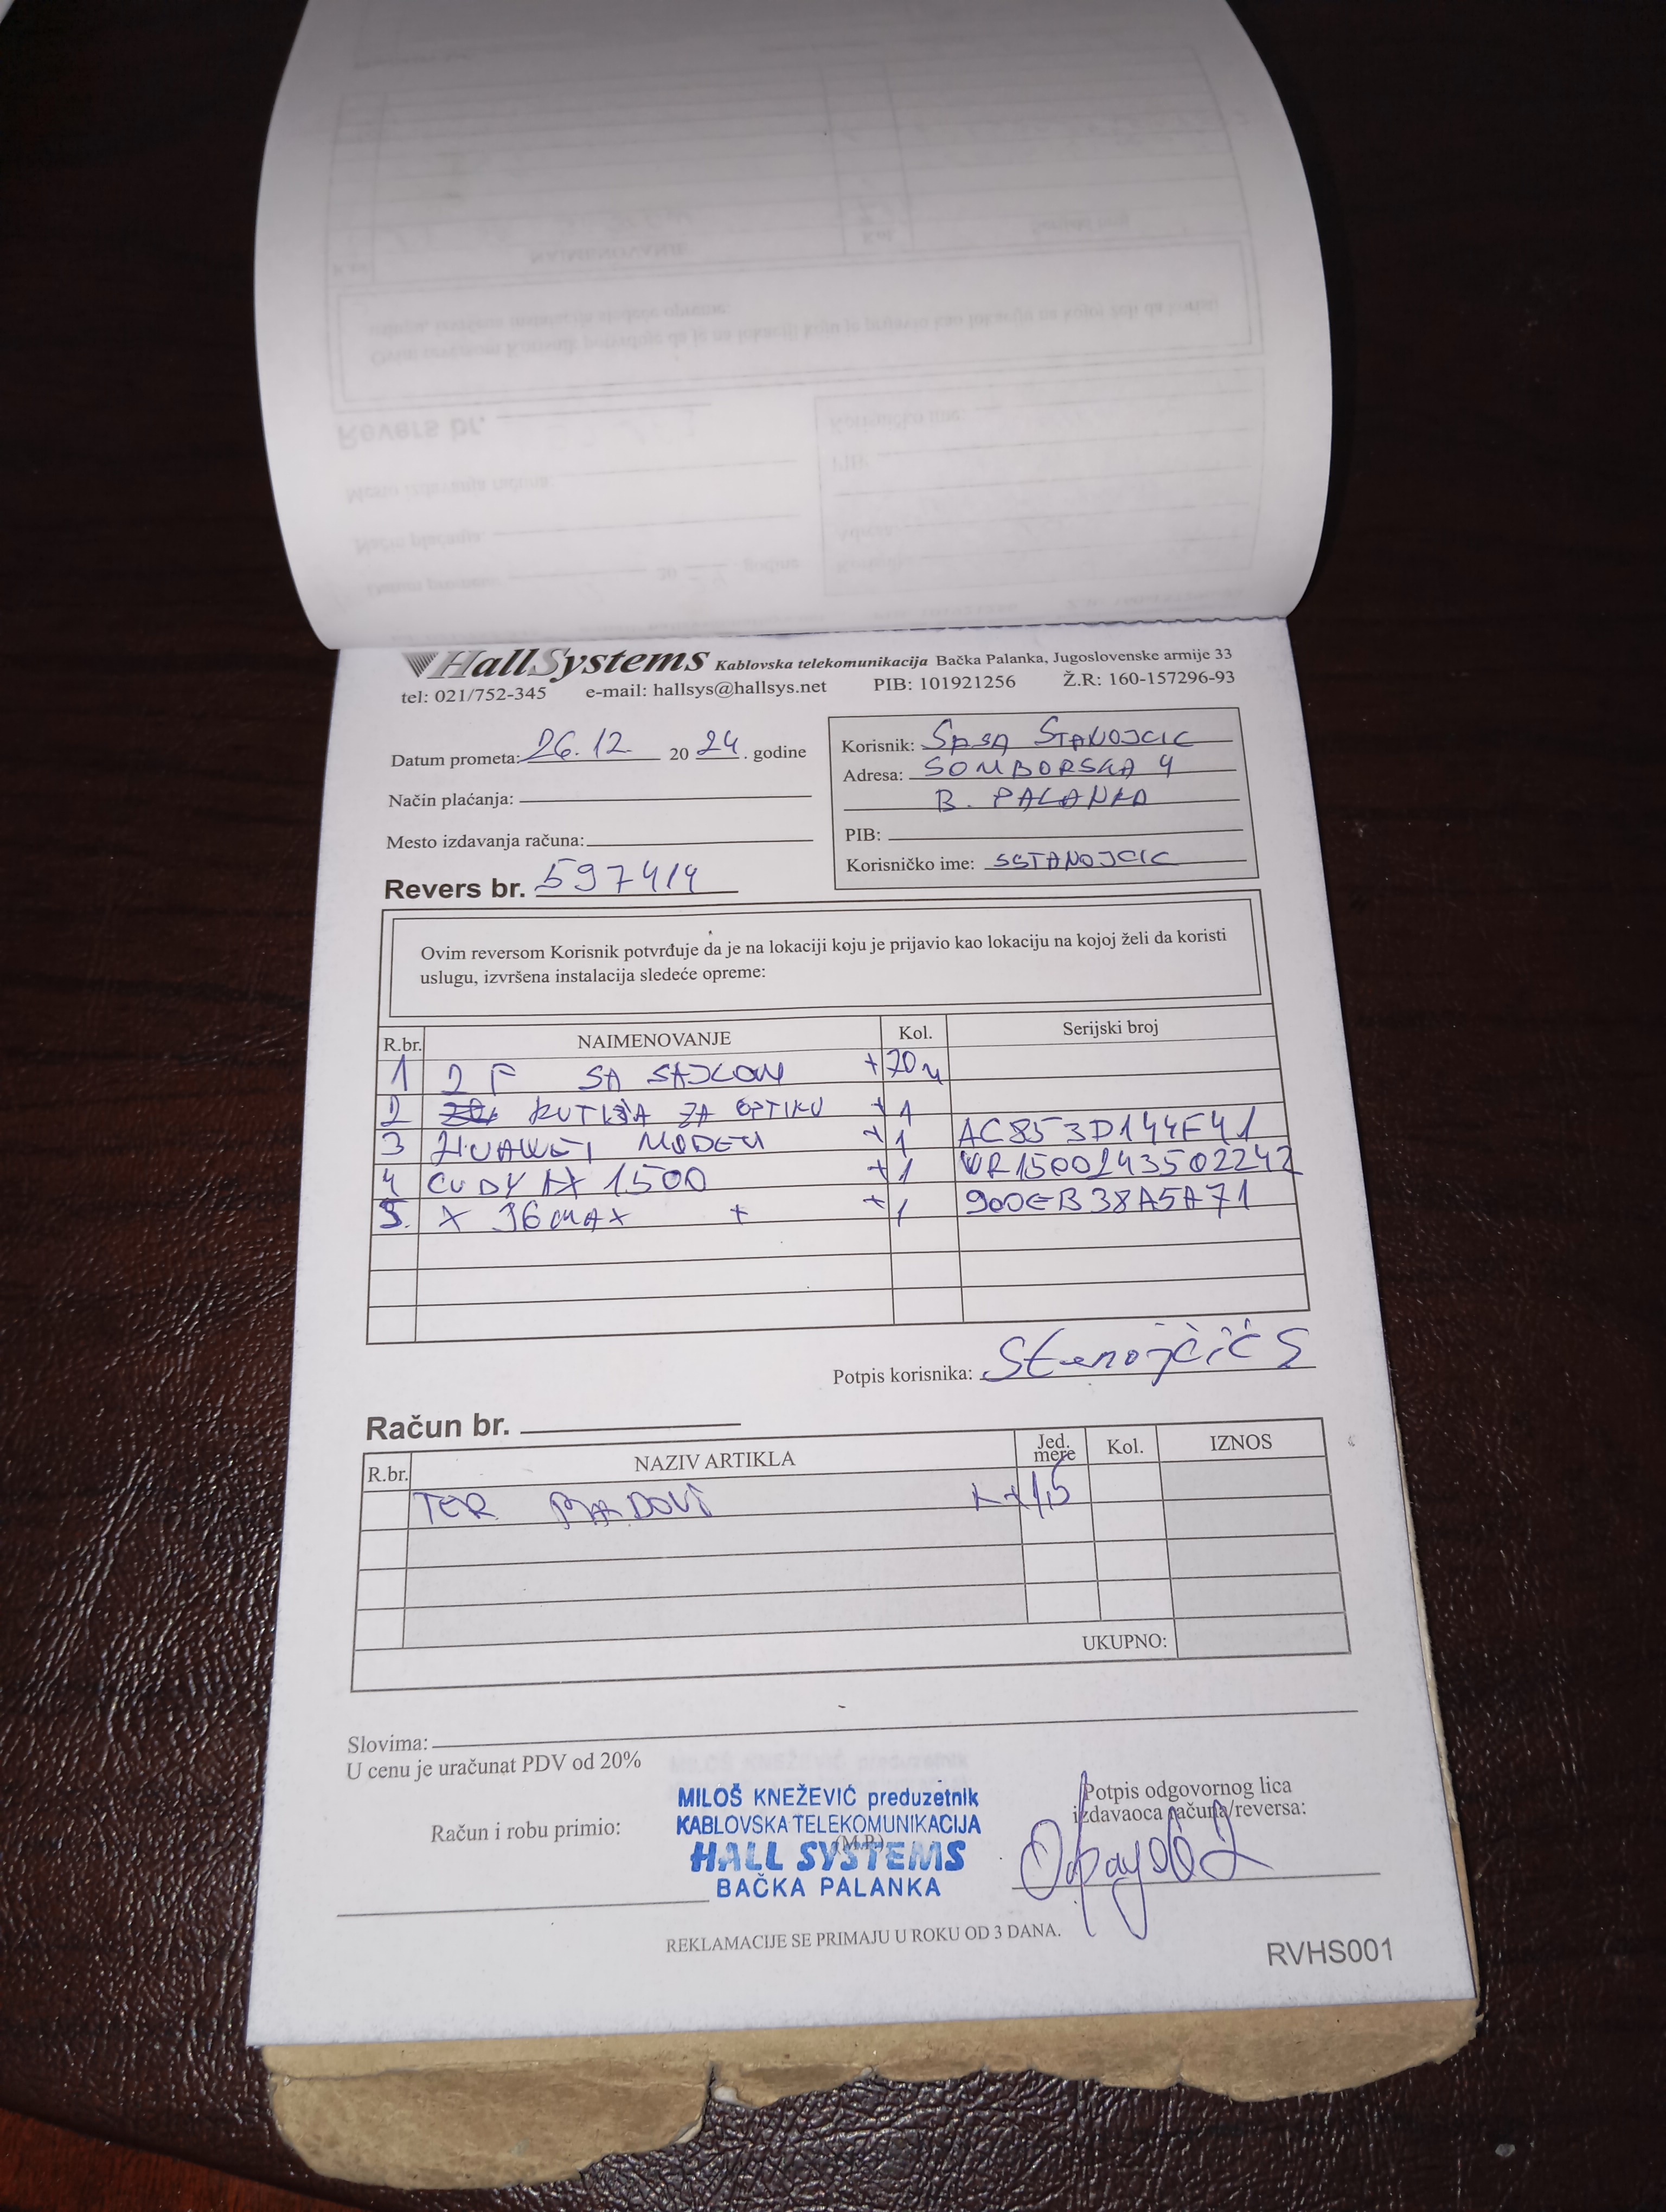 HallSystems Kablovska telekomunikacija Bačka Palanka, Jugoslovenske armije 33
tel: 021/752-345 e-mail: hallsys@hallsys.net PIB: 101921256 Ž.R: 160-157296-93
Datum prometa: 26.12. 20 24. godine
Način plaćanja:
Mesto izdavanja računa:
Revers br. 597414
Korisnik: SASA STANOJCIC
Adresa: SOMBORSKA 4
B. PALANKA
PIB:
Korisničko ime: SSTANOJCIC
Ovim reversom Korisnik potvrđuje da je na lokaciji koju je prijavio kao lokaciju na kojoj želi da koristi
uslugu, izvršena instalacija sledeće opreme:
R.br. NAIMENOVANJE Kol. Serijski broj
1 2 F SA SAJLOM + 70 m
2 KUTIJA ZA OPTIKU + 1
3 HUAWEI MODEM + 1 AC853D144F41
4 CUDY AX 1500 + 1 WR1500243502242
5. X 96 MAX + + 1 900EB38A5A71
Potpis korisnika: Stanojčić S
Račun br.
R.br. NAZIV ARTIKLA Jed. mere Kol. IZNOS
TER RADOVI K+1,5
UKUPNO:
Slovima:
U cenu je uračunat PDV od 20%
Račun i robu primio:
MILOŠ KNEŽEVIĆ preduzetnik
KABLOVSKA TELEKOMUNIKACIJA
(M.P.)
HALL SYSTEMS
BAČKA PALANKA
Potpis odgovornog lica
izdavaoca računa/reversa:
REKLAMACIJE SE PRIMAJU U ROKU OD 3 DANA.
RVHS001